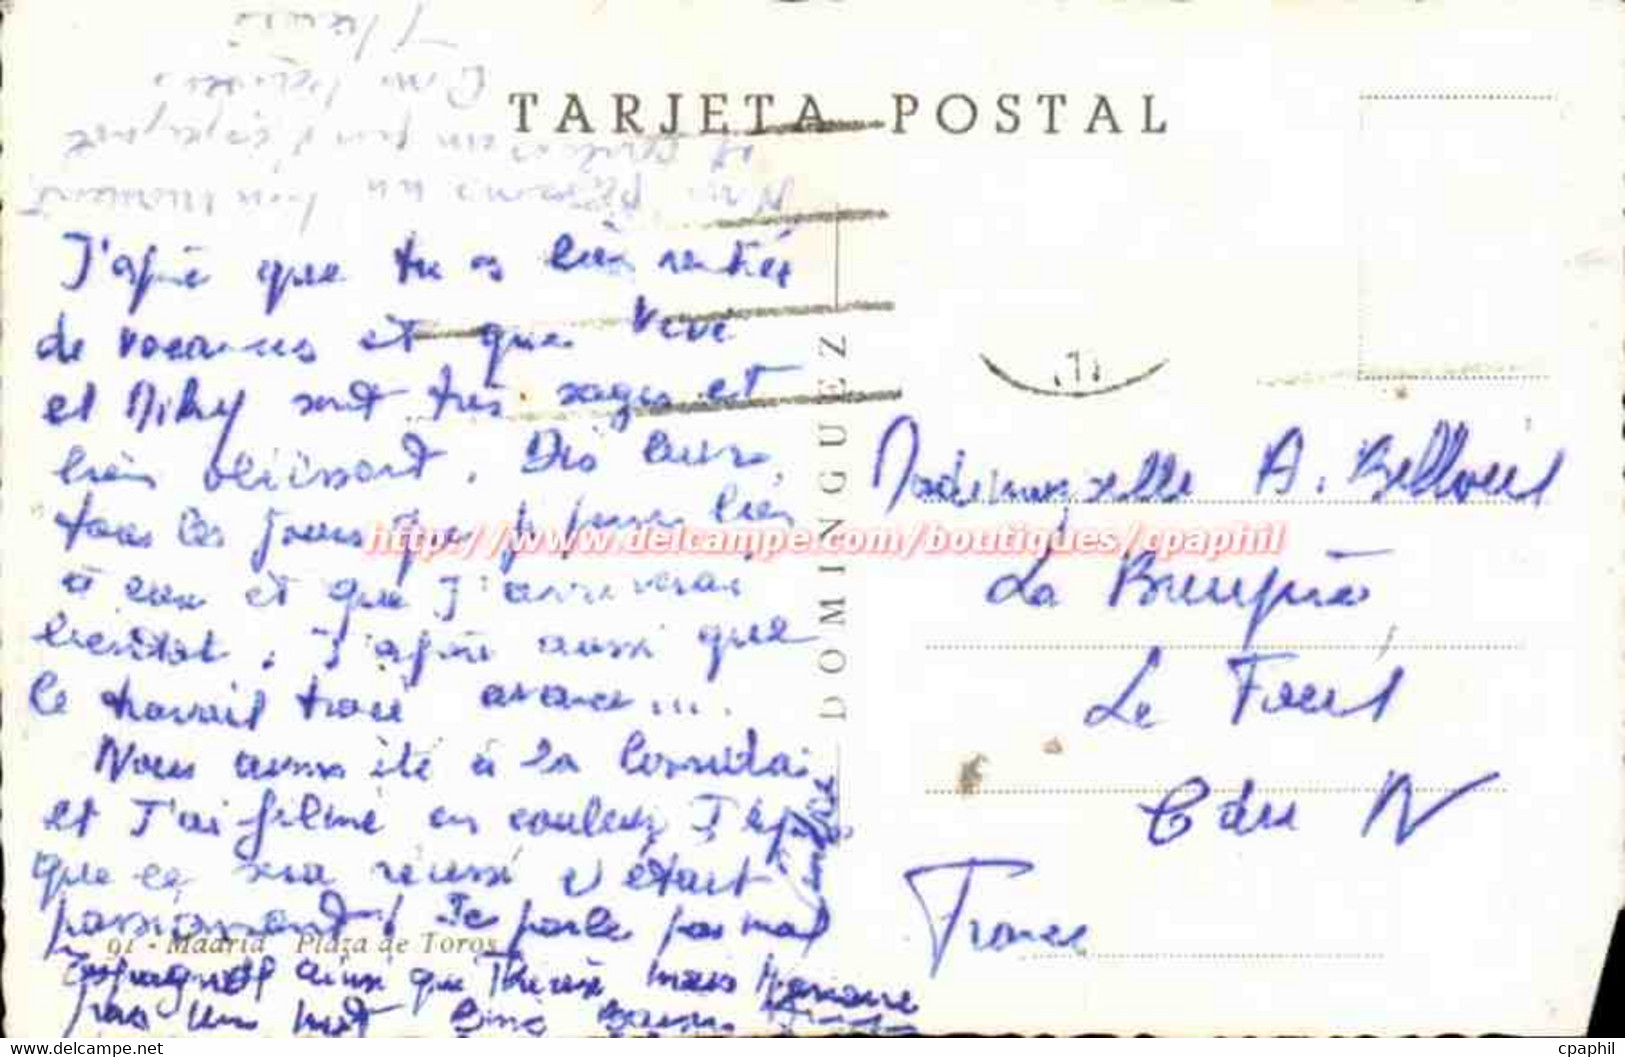 TARJETA POSTAL
Nous passons un bon moment
et
J'espère que tu es bien rentrée
de vacances et que Véve
et Miky sont très sages et
bien obéissant. Dis leurs,
tous les jours que je pense bien
à eux et que j'arriverai
bientôt. J'espère aussi que
le travail trace avance...
Nous avons été à la Corrida,
et J'ai filmé en couleur J'espère
que ce sera réussi c'était
passionnant! Je parle pas mal
Espagnol ainsi que Thérèse mais Marianne
pas un mot Bons Baisers
91 - Madrid Plaza de Toros
DOMINGUEZ
Mademoiselle A.
La
Le
C du N
France
http://www.delcampe.com/boutiques/cpaphil
http://www.delcampe.net
cpaphil